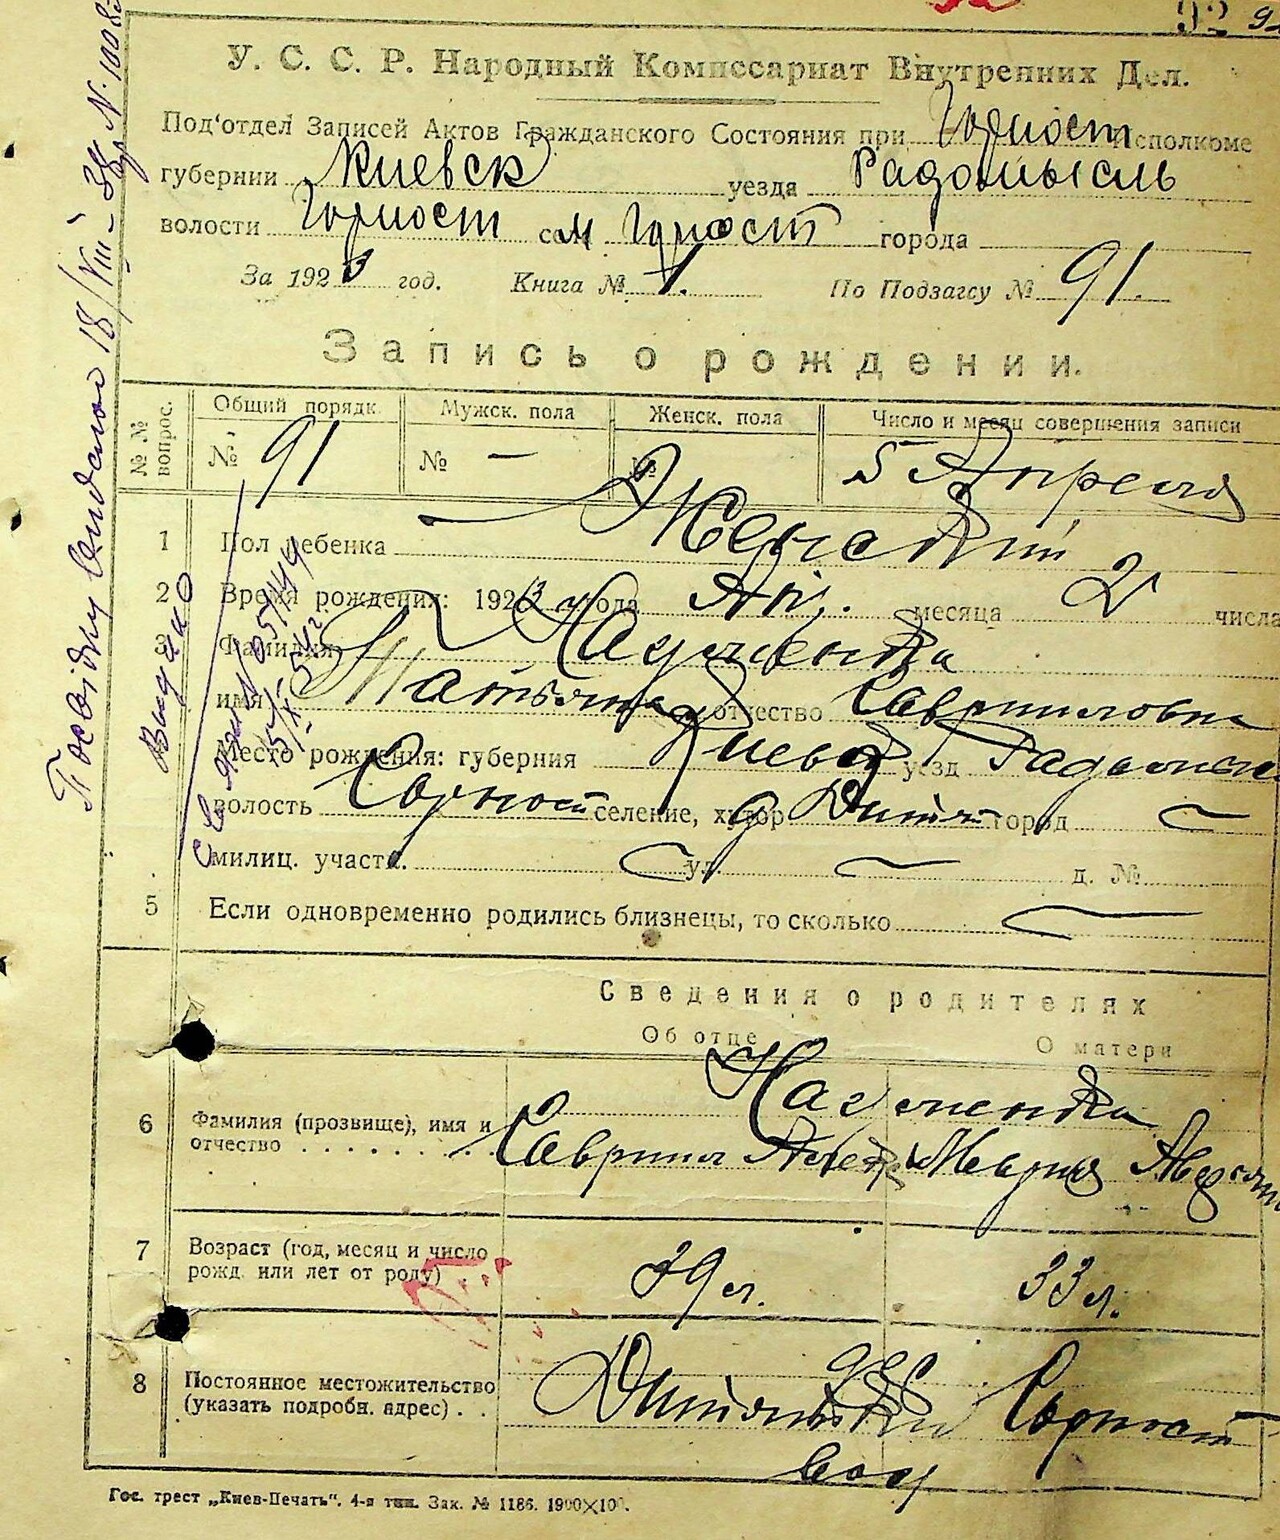 92
У. С. С. Р. Народный Комиссариат Внутренних Дел.
Под'отдел Записей Актов Гражданского Состояния при Горност Исполкоме
губернии Киевск уезда Радомысль
волости Горност сел Горност города
За 1923 год. Книга № 1. По Подзагсу № 91.
Запись о рождении.
№ № вопрос. Общий порядк. Мужск. пола Женск. пола Число и месяц совершения записи
№ 91 № — № 5 Апреля
1 Пол ребенка Женский
2 Время рождения: 1923 года Ап. месяца 2 числа
3 Фамилия Науменко
имя Татьяна отчество Гавриловна
Место рождения: губерния Киевск уезд Радомысл
волость Горност селение, хутор Дитят город —
милиц. участк. — ул. — д. №
5 Если одновременно родились близнецы, то сколько —
Сведения о родителях
Об отце О матери
Науменко
6 Фамилия (прозвище), имя и отчество Гаврил Мария
7 Возраст (год, месяц и число рожд. или лет от роду) 39 л. 33 л.
8 Постоянное местожительство (указать подробн. адрес) Горност
вол
Гос. трест „Киев-Печать". 4-я тип. Зак. № 1186. 1900×100.
Посвідку видано 18/VIII-38 р. N. 1008
Видано